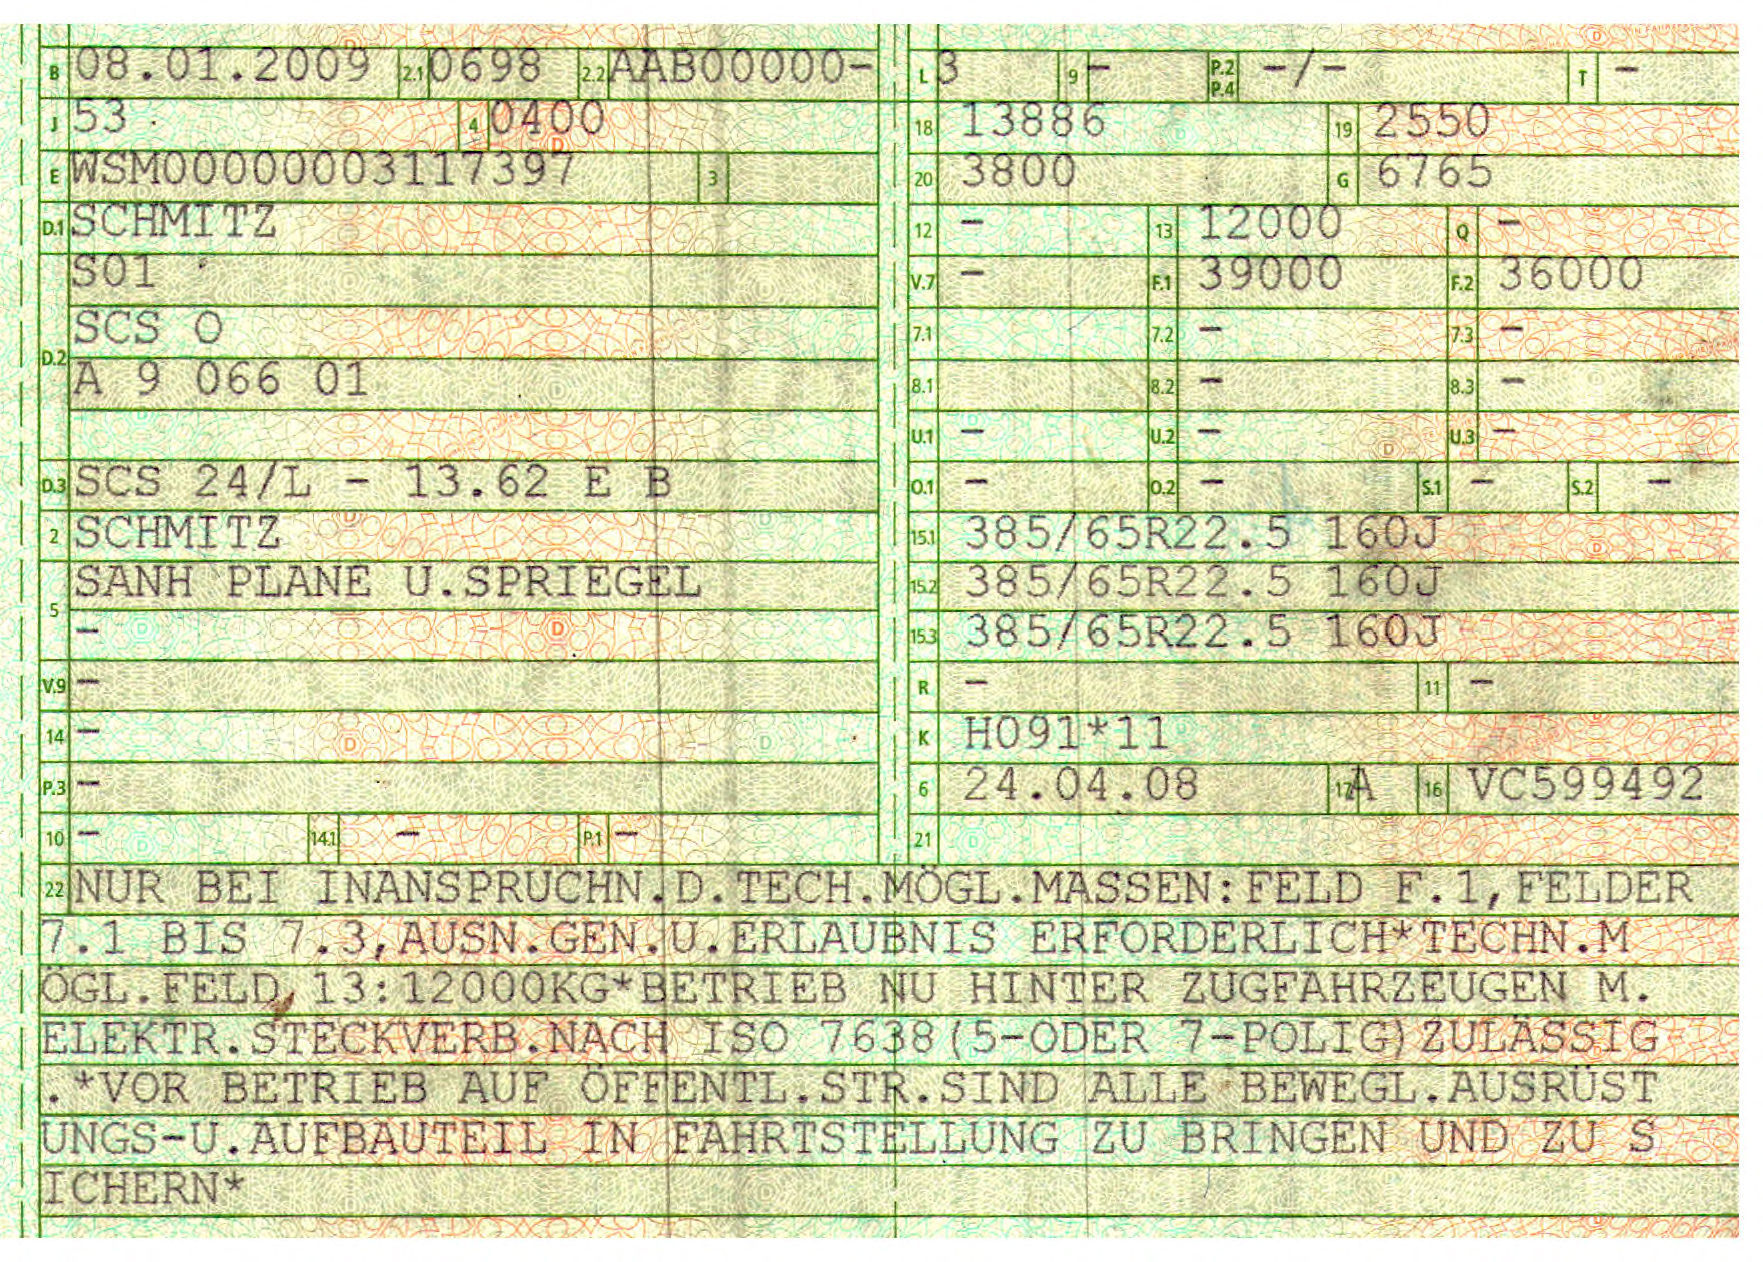 B 08.01.2009 2.1 0698 2.2 AAB00000-
J 53 4 0400
E WSM00000003117397 3
D.1 SCHMITZ
S01
SCS O
D.2
A 9 066 01
D.3 SCS 24/L - 13.62 E B
2 SCHMITZ
SANH PLANE U.SPRIEGEL
5
-
V.9 -
14 -
P.3 -
10 - 14.1 - P.1 -
L 3 9 - P.2 P.4 -/- T -
18 13886 19 2550
20 3800 G 6765
12 - 13 12000 Q -
V.7 - F.1 39000 F.2 36000
7.1 7.2 - 7.3 -
8.1 8.2 - 8.3 -
U.1 - U.2 - U.3 -
O.1 - O.2 - S.1 - S.2 -
15.1 385/65R22.5 160J
15.2 385/65R22.5 160J
15.3 385/65R22.5 160J
R - 11 -
K H091*11
6 24.04.08 17 A 16 VC599492
21
22 NUR BEI INANSPRUCHN.D.TECH.MÖGL.MASSEN:FELD F.1,FELDER
7.1 BIS 7.3,AUSN.GEN.U.ERLAUBNIS ERFORDERLICH*TECHN.M
ÖGL.FELD 13:12000KG*BETRIEB NU HINTER ZUGFAHRZEUGEN M.
ELEKTR.STECKVERB.NACH ISO 7638(5-ODER 7-POLIG)ZULÄSSIG
.*VOR BETRIEB AUF ÖFFENTL.STR.SIND ALLE BEWEGL.AUSRÜST
UNGS-U.AUFBAUTEIL IN FAHRTSTELLUNG ZU BRINGEN UND ZU S
ICHERN*